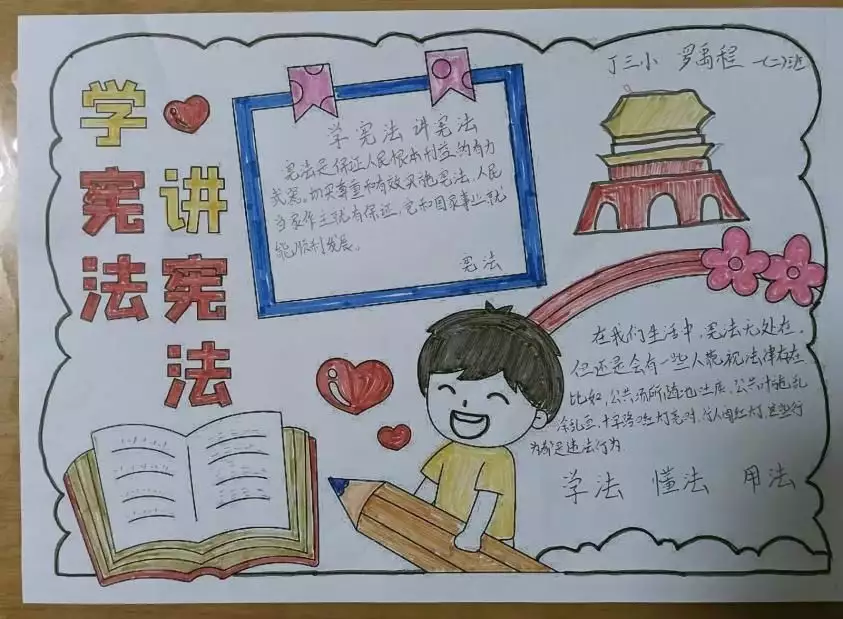 丁三小 罗禹程 一(二)班
学宪法
讲宪法
学宪法讲宪法
宪法是保证人民根本利益的有力
武器。切实尊重和有效实施宪法,人民
当家作主就有保证,党和国家事业就
能顺利发展。
宪法
在我们生活中,宪法无处在,
但还是会有一些人藐视法律存在
比如,公共场所随地吐痰,公共
红灯亮时,行人闯红灯,这些行
为都是违法行为
学法 懂法 用法